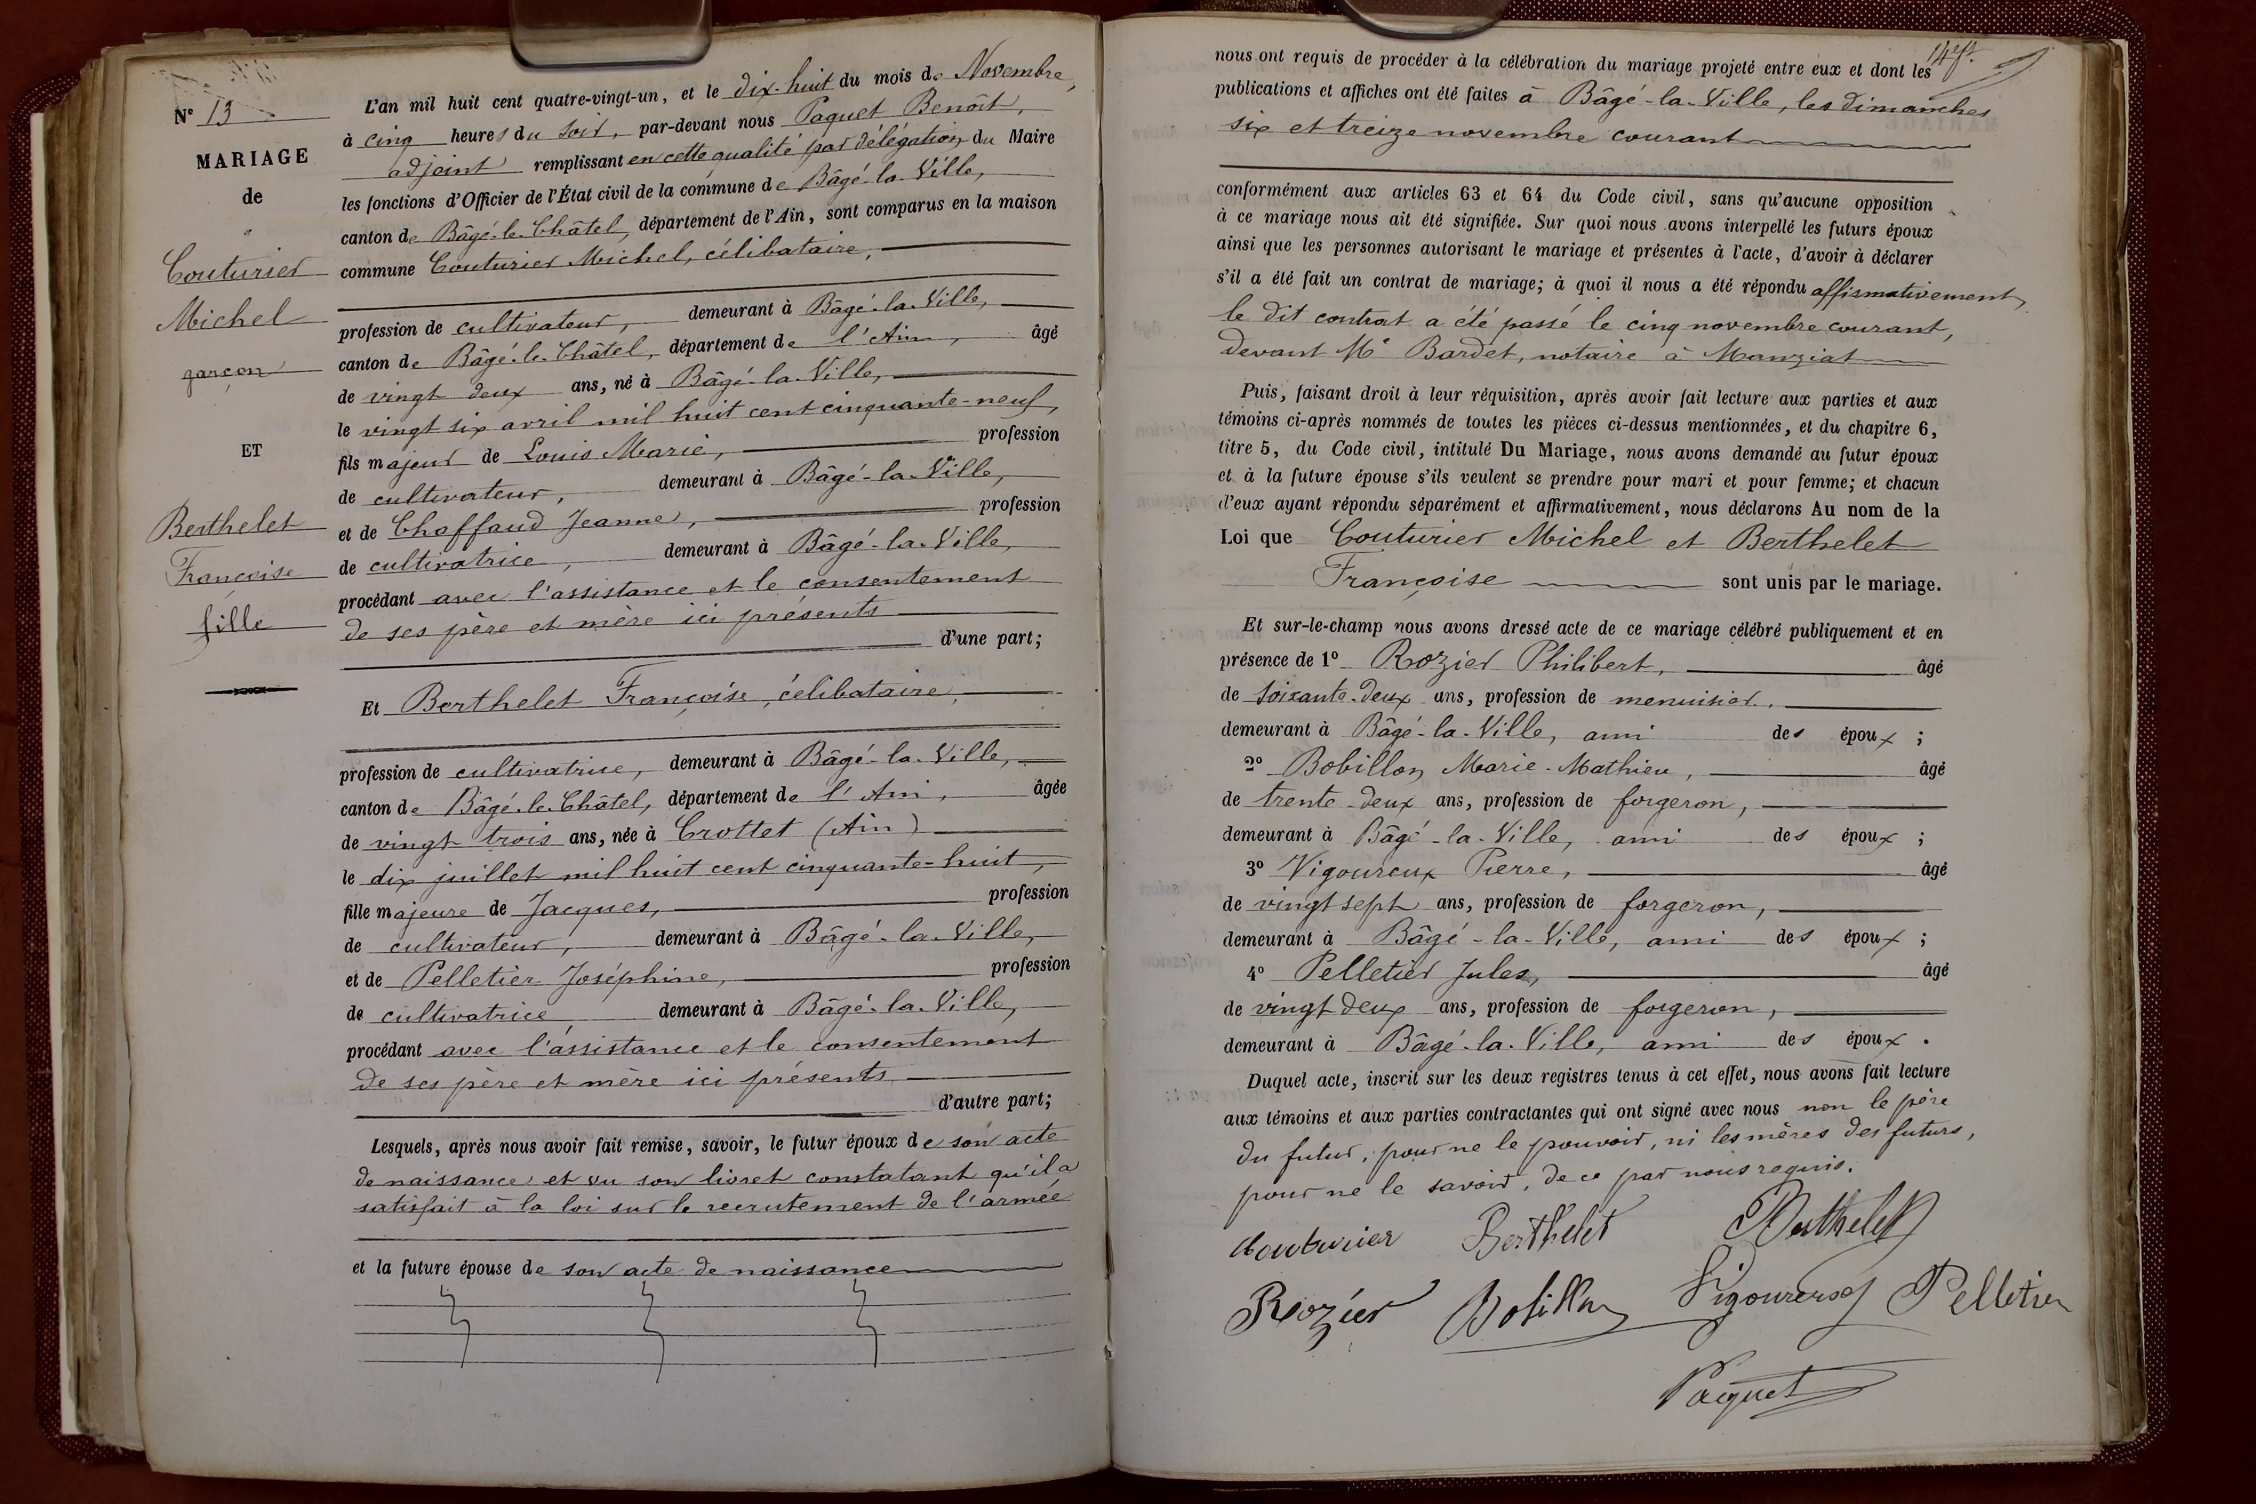 N° 13
MARIAGE
de
Couturier
Michel
garçon
ET
Berthelet
Françoise
fille
L'an mil huit cent quatre-vingt-un, et le dix-huit du mois de Novembre,
à cinq heures du soir, par-devant nous Paquet Benoît,
adjoint remplissant en cette qualité par délégation du Maire
les fonctions d'Officier de l'État civil de la commune de Bâgé-la-Ville,
canton de Bâgé-le-Châtel, département de l'Ain, sont comparus en la maison
commune Couturier Michel, célibataire,
profession de cultivateur, demeurant à Bâgé-la-Ville,
canton de Bâgé-le-Châtel, département de l'Ain, âgé
de vingt deux ans, né à Bâgé-la-Ville,
le vingt six avril mil huit cent cinquante-neuf,
fils majeur de Louis Marie, profession
de cultivateur, demeurant à Bâgé-la-Ville,
et de Chaffaud Jeanne, profession
de cultivatrice, demeurant à Bâgé-la-Ville,
procédant avec l'assistance et le consentement
de ses père et mère ici présents
d'une part;
Et Berthelet Françoise, célibataire,
profession de cultivatrice, demeurant à Bâgé-la-Ville,
canton de Bâgé-le-Châtel, département de l'Ain, âgée
de vingt trois ans, née à Crottet (Ain)
le dix juillet mil huit cent cinquante-huit,
fille majeure de Jacques, profession
de cultivateur, demeurant à Bâgé-la-Ville,
et de Pelletier Joséphine, profession
de cultivatrice demeurant à Bâgé-la-Ville,
procédant avec l'assistance et le consentement
de ses père et mère ici présents
d'autre part;
Lesquels, après nous avoir fait remise, savoir, le futur époux de son acte
de naissance et vu son livret constatant qu'il a
satisfait à la loi sur le recrutement de l'armée
et la future épouse de son acte de naissance
nous ont requis de procéder à la célébration du mariage projeté entre eux et dont les
publications et affiches ont été faites à Bâgé-la-Ville, les dimanches
six et treize novembre courant
conformément aux articles 63 et 64 du Code civil, sans qu'aucune opposition
à ce mariage nous ait été signifiée. Sur quoi nous avons interpellé les futurs époux
ainsi que les personnes autorisant le mariage et présentes à l'acte, d'avoir à déclarer
s'il a été fait un contrat de mariage; à quoi il nous a été répondu affirmativement,
le dit contrat a été passé le cinq novembre courant,
devant Me Bardet, notaire à Manziat
Puis, faisant droit à leur réquisition, après avoir fait lecture aux parties et aux
témoins ci-après nommés de toutes les pièces ci-dessus mentionnées, et du chapitre 6,
titre 5, du Code civil, intitulé Du Mariage, nous avons demandé au futur époux
et à la future épouse s'ils veulent se prendre pour mari et pour femme; et chacun
d'eux ayant répondu séparément et affirmativement, nous déclarons Au nom de la
Loi que Couturier Michel et Berthelet
Françoise sont unis par le mariage.
Et sur-le-champ nous avons dressé acte de ce mariage célébré publiquement et en
présence de 1° Rozier Philibert, âgé
de soixante-deux ans, profession de menuisier,
demeurant à Bâgé-la-Ville, ami des époux ;
2° Bobillon Marie-Mathieu, âgé
de trente-deux ans, profession de forgeron,
demeurant à Bâgé-la-Ville, ami des époux ;
3° Vigoureux Pierre, âgé
de vingt sept ans, profession de forgeron,
demeurant à Bâgé-la-Ville, ami des époux ;
4° Pelletier Jules, âgé
de vingt deux ans, profession de forgeron,
demeurant à Bâgé-la-Ville, ami des époux.
Duquel acte, inscrit sur les deux registres tenus à cet effet, nous avons fait lecture
aux témoins et aux parties contractantes qui ont signé avec nous non le père
du futur, pour ne le pouvoir, ni les mères des futurs,
pour ne le savoir, de ce par nous requis.
Couturier Berthelet Berthelet
Rozier Bobillon Vigoureux Pelletier
Paquet